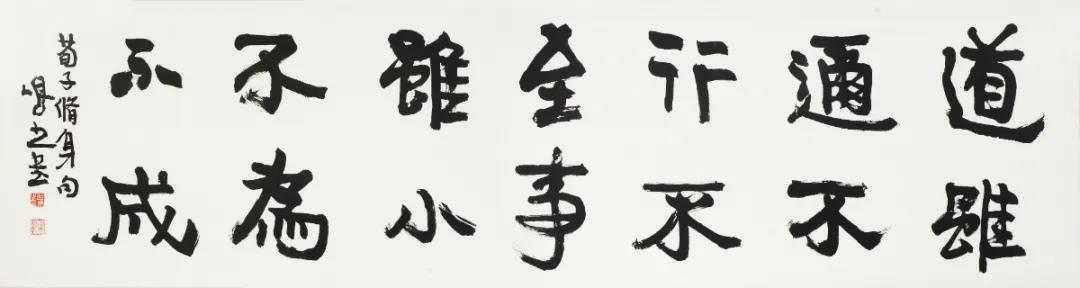 道雖
邇不
行不
至事
雖小
不為
不成
荀子脩身句